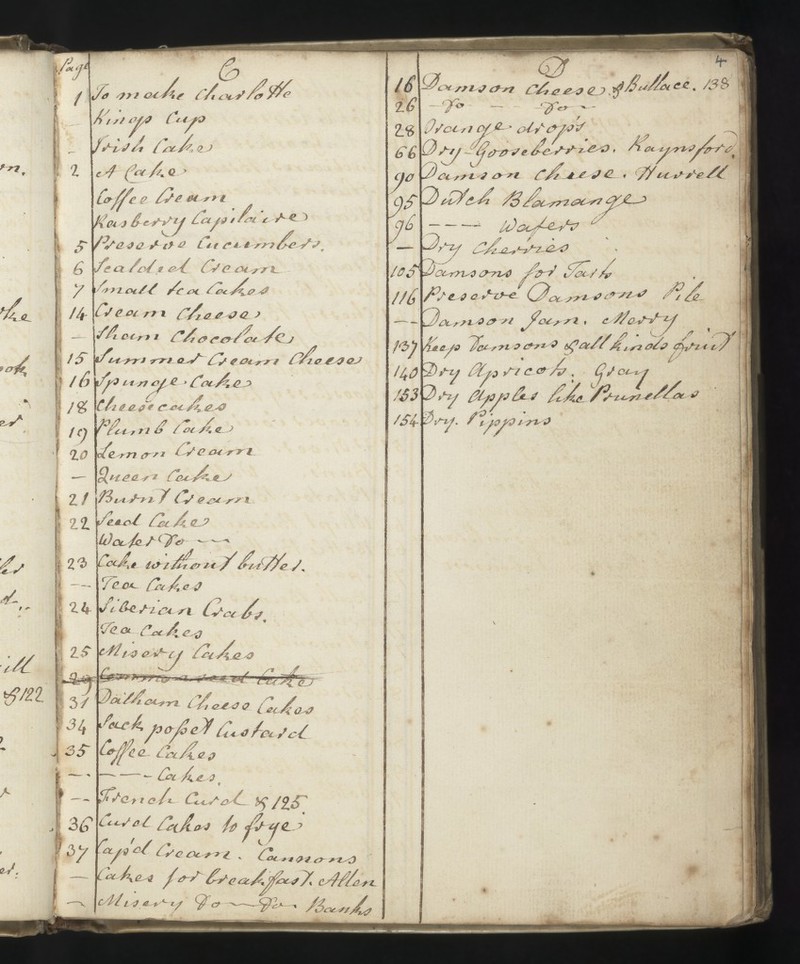 Page C
1 To make Charlotte
— Kings Cup
— Irish Cake
2 A Cake
Coffee Cream
Rasberry Capilaire
5 Preserve Cucumbers.
6 Scalded Cream
7 Small tea Cakes
14 Cream Cheese
— Sham Chocolate
15 Summer Cream Cheese
16 Spunge Cake
18 Cheesecakes
19 Plumb Cake
20 Lemon Cream
— Queen Cake
21 Burnt Cream
22 Seed Cake
Wafer Do —
23 Cake without butter.
-- Tea Cakes
24 Siberian Crabs.
Tea Cakes
25 Misery Cakes
29 Common seed Cake
31 Dalham Cheese Cakes
34 Sack posset Custard
35 Coffee Cakes
— - — — - Cakes.
-- French Curd & 125
36 Curd Cakes to frye
37 Cap'd Cream. Cannons
— Cakes for breakfast. Allen
— Misery Do — Do. Banks
D 4
16 Damson Cheese & Bullace. 138
26 — Do — Do —
28 Orange drops
66 Dry Gooseberries. Raynsford.
90 Damson Cheese. Hurrell
95 Dutch Blamange
96 — — — Wafers
— Dry Cherries
105 Damsons for Tarts
116 Preserve Damsons Pile
-- Damson Jam. Merry
137 Keep Damsons & all kinds fruit
140 Dry Apricots. Gray
153 Dry Apples like Prunellas
154 Dry. Pippins
m.
the
ill
& 122